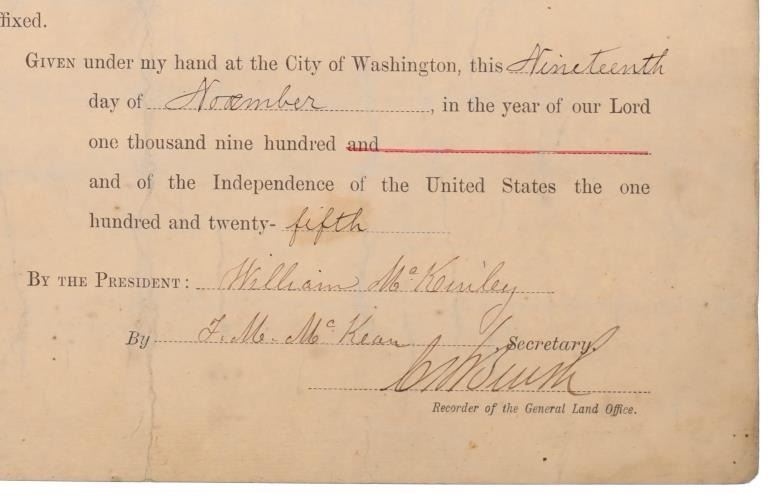 ffixed.
GIVEN under my hand at the City of Washington, this Nineteenth
day of November, in the year of our Lord
one thousand nine hundred and
and of the Independence of the United States the one
hundred and twenty-fifth
BY THE PRESIDENT: William McKinley
By F. M. McKean, Secretary.
Recorder of the General Land Office.